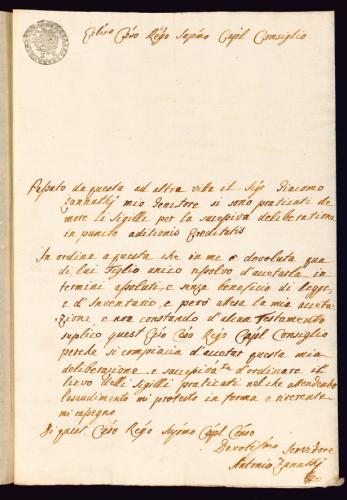 Ces:o Reg:o Supmo Capl Consiglio
Passato da questa ad altra vita il Sigr Giacomo
Zannatti mio Genitore si sono praticati de
more li Sigilli per la successiva deliberatione
in puncto aditionis Ereditatis
In ordine a questa che in me è devoluta qua
di lui figlio unico risolvo d'accetarla in
termini assoluti, e senza beneficio di legge,
e d'Inventario, e però attesa la mia accetta-
zione e non constando d'alcun Testamento
suplico quest' Ces:o Reg:o Capl Consiglio
perche si compiacia d'accetar questa mia
deliberazione, e successivate d'ordinare il
lievo delli Sigilli praticati, nel che attendendo
l'esaudimento mi protesto in forma e riverente
mi rassegno
Di quest' Ces:o Reg:o Supmo Capl Conso
Devotissmo Servidore
Antonio Zanatti